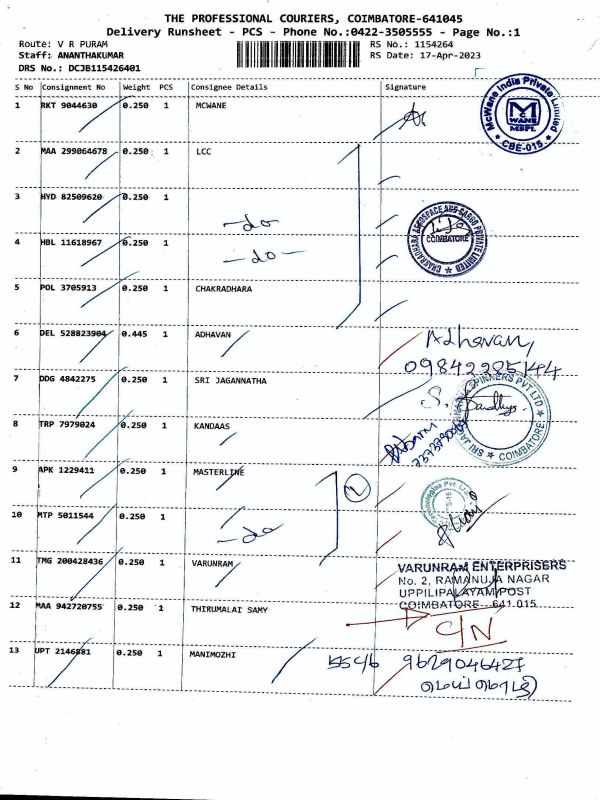 THE PROFESSIONAL COURIERS, COIMBATORE-641045
Delivery Runsheet - PCS - Phone No.:0422-3505555 - Page No.:1
Route: V R PURAM
RS No.: 1154264
Staff: ANANTHAKUMAR
RS Date: 17-Apr-2023
DRS No.: DCJB115426401
S No Consignment No Weight PCS Consignee Details Signature
1 RKT 9044630 0.250 1 MCWANE
McWane India Private Limited
McWANE
MBPL
CBE-015
2 MAA 299064678 0.250 1 LCC
3 HYD 82509620 0.250 1 -do-
4 HBL 11618967 0.250 1 -do-
CHAKRADHARA AEROSPACE AND CARGO PRIVATE LIMITED
COIMBATORE
5 POL 3705913 0.250 1 CHAKRADHARA
6 DEL 528823904 0.445 1 ADHAVAN Adhavan,
09842285144
7 DDG 4842275 0.250 1 SRI JAGANNATHA
SPINNERS PVT LTD
COIMBATORE
8 TRP 7979024 0.250 1 KANDAAS
9 APK 1229411 0.250 1 MASTERLINE
2
10 MTP 5011544 0.250 1 -do-
11 TMG 200428436 0.250 1 VARUNRAM
VARUNRAM ENTERPRISERS
No. 2, RAMANUJA NAGAR
UPPILIPALAYAM POST
COIMBATORE - 641 015
12 MAA 942720755 0.250 1 THIRUMALAI SAMY
C/N
13 UPT 2146881 0.250 1 MANIMOZHI 55c/6 9629046427